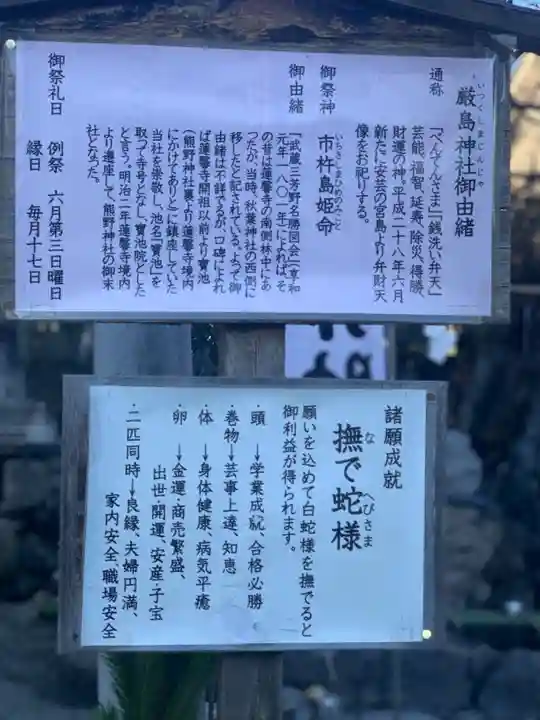 厳島神社御由緒
いつくしまじんじゃ
通称 「べんてんさま」「銭洗い弁天」
芸能、福智、延寿、除災、得勝、
財運の神、平成二十八年六月
新たに安芸の宮島より弁財天
像をお祀りする。
御祭神 市杵島姫命
いちきしまひめのみこと
御由緒
『武蔵三芳野名勝図会』(享和
元年一八〇一年)によれば、そ
の昔は蓮馨寺の南側林中にあ
つたが、当時、秋葉神社の西側に
移したと記されている。よって御
由緒は不詳であるが、口碑によれ
ば蓮馨寺開祖以前より寳池
(熊野神社裏より蓮馨寺境内
にかけてあり)に鎮座していた
当社を崇敬し、池名「寳池」を
取って寺号となし、寳池院とした
と言う。明治二年蓮馨寺境内
より遷座して熊野神社の御末
社となった。
御祭礼日 例祭 六月第三日曜日
縁日 毎月十七日
諸願成就
撫で蛇様
な へびさま
願いを込めて白蛇様を撫でると
御利益が得られます。
・頭 →学業成就、合格必勝
・巻物→芸事上達、知恵
・体 →身体健康、病気平癒
・卵 →金運・商売繁盛、
出世・開運、安産・子宝
・二匹同時→良縁、夫婦円満、
家内安全、職場安全